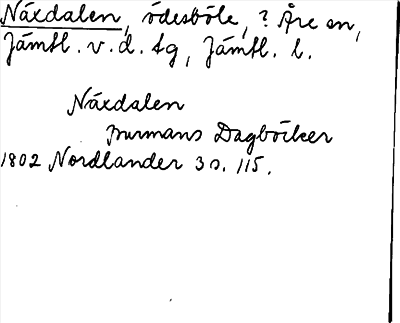 Näxdalen, ödesböle, ? Åre sn,
Jämtl. v. d. tg, Jämtl. l.
Näxdalen
Burmans Dagböcker
1802 Nordlander 3 s. 115.